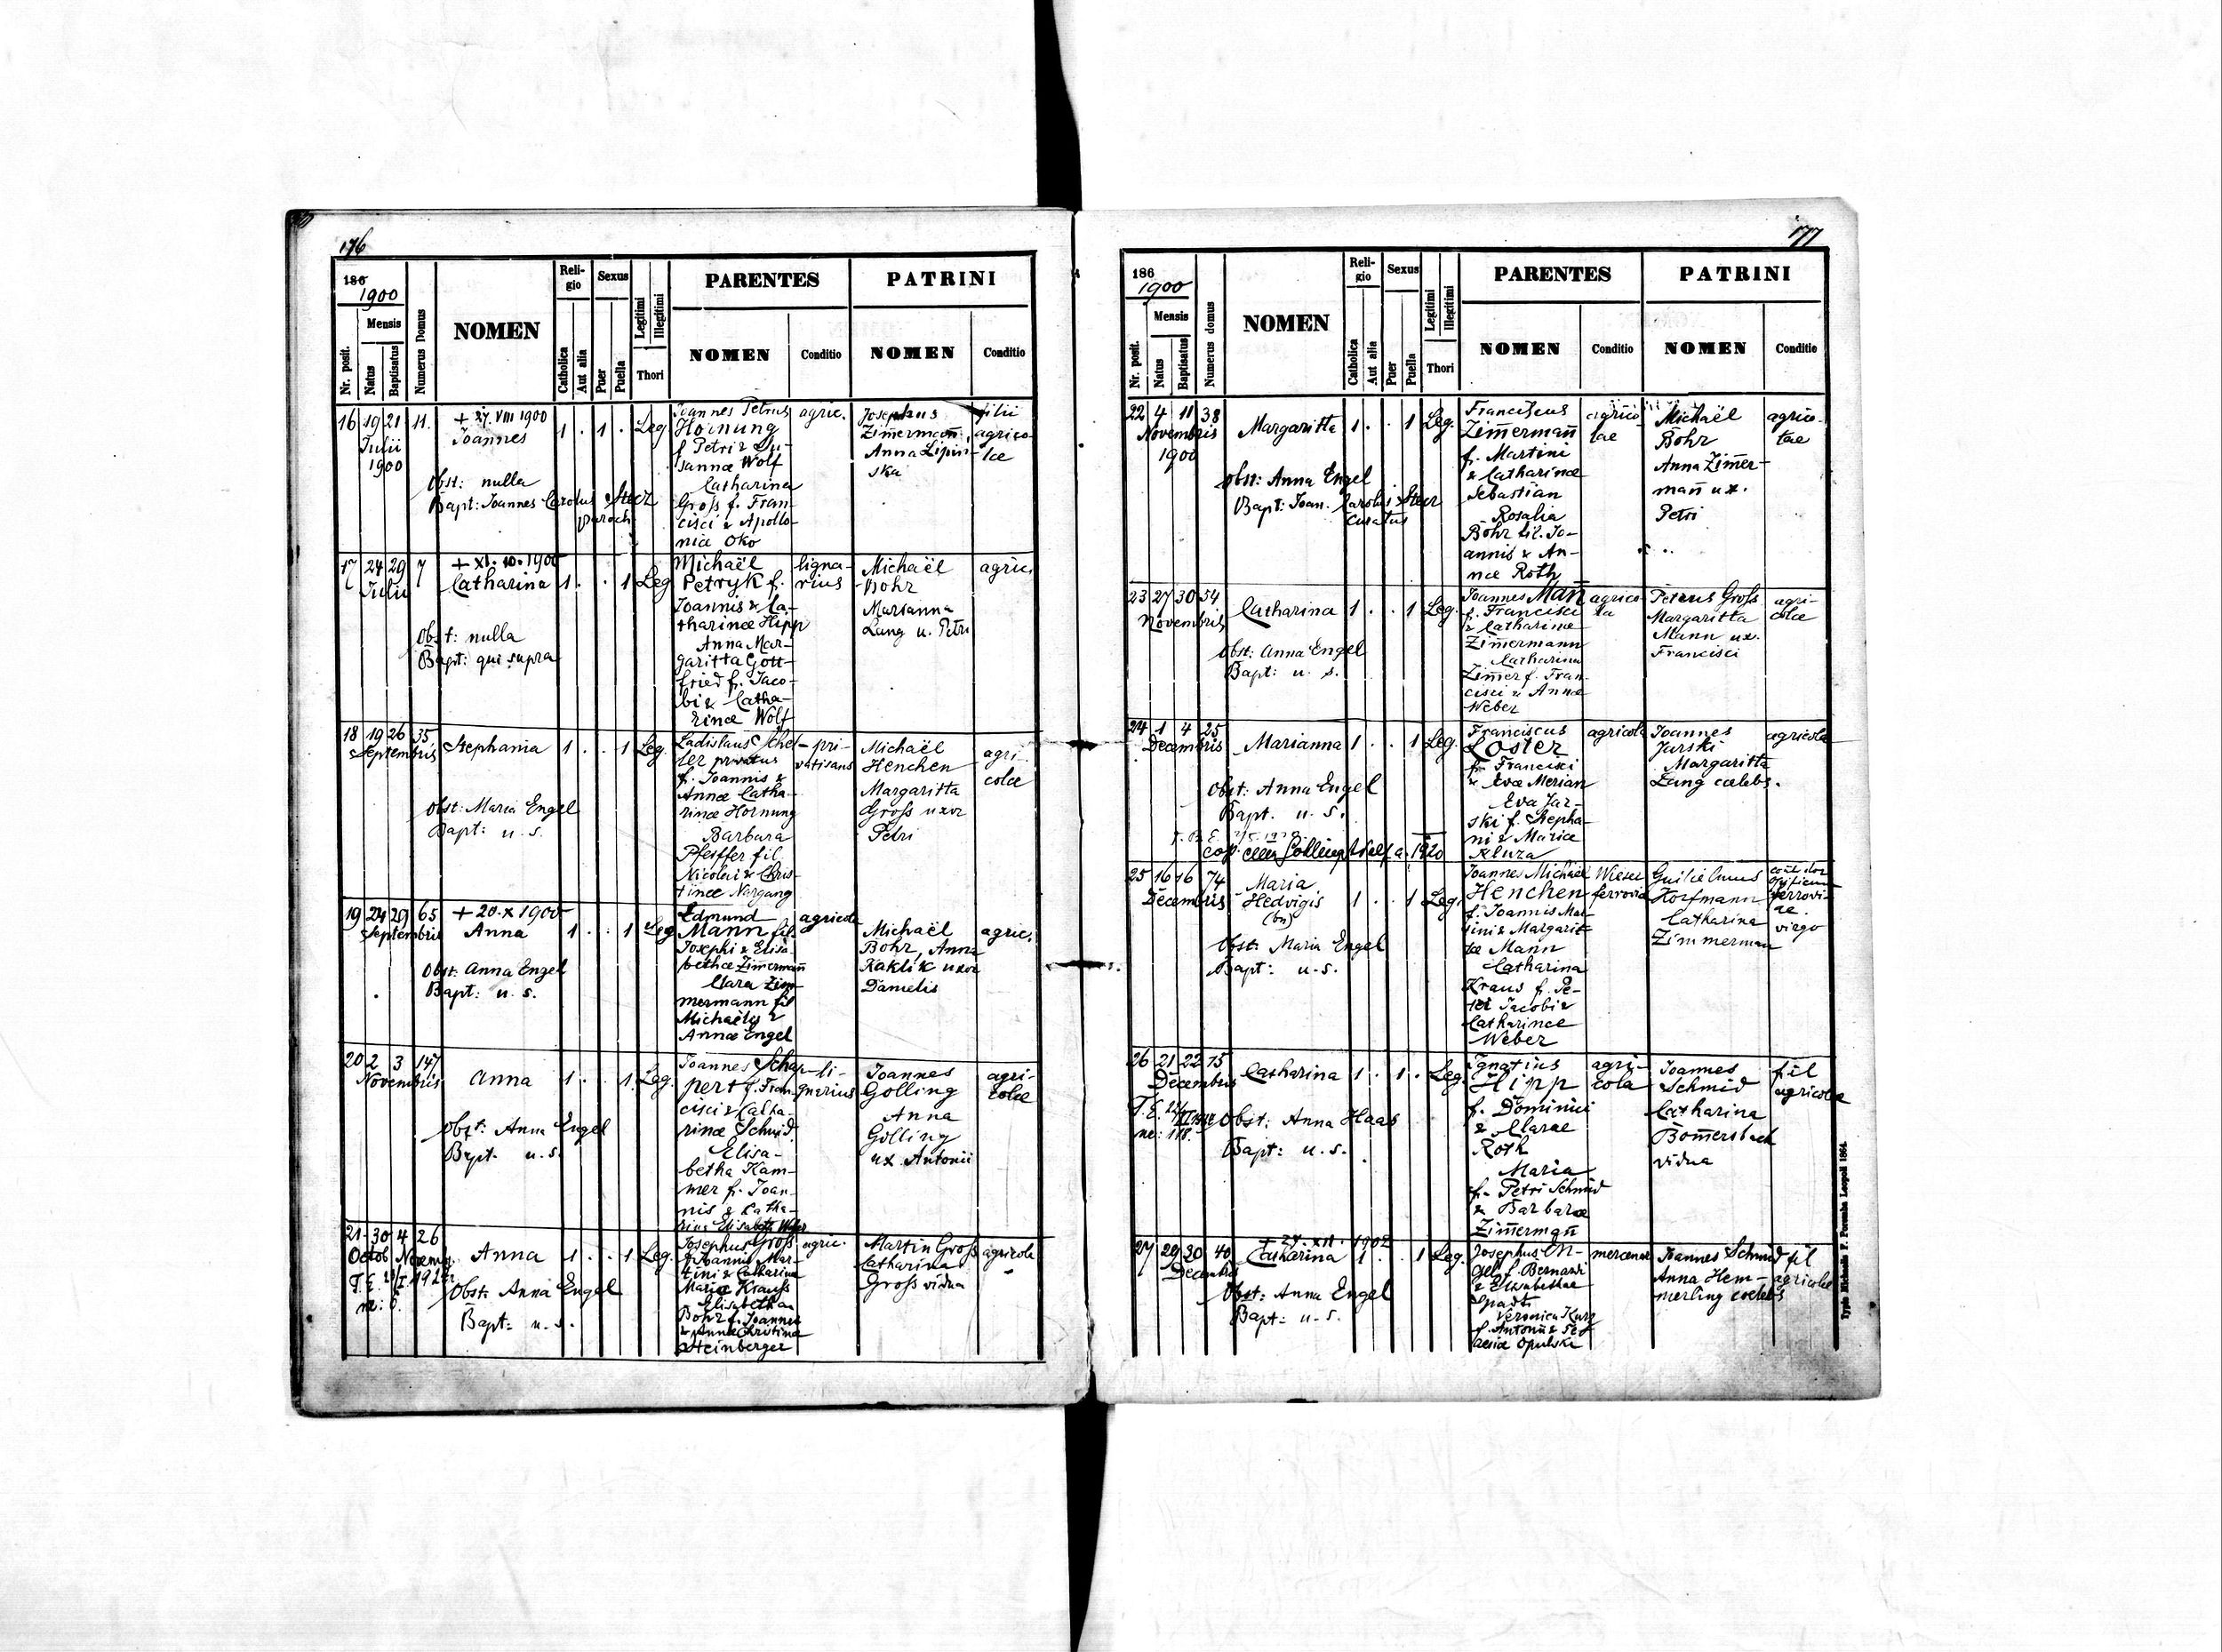 176
186
1900
Nr. posit.
Mensis
Natus
Baptisatus
Numerus Domus
NOMEN
Religio
Catholica
Aut alia
Sexus
Puer
Puella
Legitimi
Illegitimi
Thori
PARENTES
NOMEN
Conditio
PATRINI
NOMEN
Conditio
16 19 21 11.
Julii
1900
+ 27. VIII 1900
Joannes
1 . 1 . Leg.
Obst: nulla
Bapt: Joannes Carolus
paroch
Joannes Petrus
Hornung
f Petri & Su-
sannæ Wolf
Catharina
Groß f. Fran-
cisci & Apollo-
niæ Oko
agric.
Josephus
Zimmermann,
Anna Lipin-
ska
filii
agrico-
lae
17 24 29 7
Julii
+ XI. 10. 1900
Catharina
1 . . 1 Leg
Obst: nulla
Bapt: qui supra
Michaël
Petryk f.
Joannis & Ca-
tharinæ Hipp
Anna Mar-
garitta Gott-
fried f. Jaco-
bi & Catha-
rinæ Wolf
ligna-
rius
Michaël
Bohr
Marianna
Lang u. Petri
agric.
18 19 26 35
Septembris
Stephania
1 . . 1 Leg.
Obst: Maria Engel
Bapt: u. s.
Ladislaus
privatus
f. Joannis &
Annæ Catha-
rinæ Hornung
Barbara
Pfeiffer fil
Nicolai & Chris-
tinæ Nargang
pri-
vatisans
Michaël
Henchen
Margaritta
Groß uxor
Petri
agri-
colæ
19 24 29 65
Septembris
+ 20. X 1900
Anna
1 . . 1 Leg
Obst: Anna Engel
Bapt: u. s.
Edmund
Mann fil.
Josephi & Elisa-
bethæ Zimermann
Clara Zim-
mermann fil
Michaëlis &
Annæ Engel
agricola
Michaël
Bohr, Anna
Raklik uxor
Danielis
agric.
20 2 3 147
Novembris
Anna
1 . . 1. Leg.
Obst: Anna Engel
Bapt. u. s.
Joannes Schap-
pert f. Fran-
cisci & Catha-
rinæ Schmid.
Elisa-
betha Kam-
mer f. Joan-
nis & Catha-
rinæ Elisabeth Weber
li-
gnarius
Joannes
Golling
Anna
Golling
ux. Antonii
agri-
colæ
21 30 4 26
Octob Novemb.
Anna
1 . . 1 Leg.
Obst: Anna Engel
Bapt: u. s.
Josephus Groß
f. Joannis Mar-
tini & Catharina
Maria Krauß
Elisabetha
Bohr f. Joannis
& Annæ Christina
Steinberger
agric.
Martin Groß
Catharina
Groß vidua
agricola
177
186
1900
Nr. posit.
Mensis
Natus
Baptisatus
Numerus domus
NOMEN
Religio
Catholica
Aut alia
Sexus
Puer
Puella
Legitimi
Illegitimi
Thori
PARENTES
NOMEN
Conditio
PATRINI
NOMEN
Conditio
22 4 11 38
Novembris
1900
Margaritta
1 . . 1 Leg.
Obst: Anna Engel
Bapt: Joan. Carolus
curatus
Franciscus
Zimmermann
f. Martini
& Catharinæ
Sebastian
Rosalia
Bohr fil. Jo-
annis & An-
næ Roth
agrico-
lae
Michaël
Bohr
Anna Zimer-
mann ux.
Petri
agrico-
lae
23 27 30 54
Novembris
Catharina
1 . . 1 Leg.
Obst: Anna Engel
Bapt: u. s.
Joannes Man
f. Francisci
& Catharinæ
Zimmermann
Catharina
Zimmer f. Fran-
cisci & Annæ
Weber
agrico-
la
Petrus Groß
Margaritta
Mann ux.
Francisci
agri-
colæ
24 1 4 25
Decembris
Marianna
1 . . 1 Leg.
Obst: Anna Engel
Bapt. u. s.
Franciscus
Loster
f. Francisci
& Evæ Merian
Eva Jar-
ski f. Stepha-
ni & Mariæ
Kluza
agricola
Joannes
Jarski
Margaritta
Lang cælebs.
agricola
25 16 16 74
Decembris
Maria
Hedvigis
(bn)
1 . . 1 Leg.
Obst: Maria Engel
Bapt: u. s.
Joannes Michael
Henchen
f. Joannis Mar-
tini & Margarit-
tæ Mann
Catharina
Kraus f. Pe-
tri Jacobi &
Catharinæ
Weber
ferroviæ
Guilielmus
Hofmann
Catharina
Zimmerman
ferrovi-
ae.
virgo
26 21 22 15
Decembris
Catharina
1 . 1 . Leg.
Obst: Anna Haas
Bapt: u. s.
Ignatius
Hipp
f. Dominici
& Claræ
Roth
Maria
f. Petri Schmid
& Barbaræ
Zimmermann
agri-
cola
Joannes
Schmid
Catharina
Bomersbach
vidua
fil
agricola
27 29 30 40
Decembris
+ 27. XII. 1902
Catharina
1 . . 1 Leg.
Obst: Anna Engel
Bapt: u. s.
Josephus En-
gel f. Bernardi
& Elisabethæ
Spadt
Veronica Kurz
f. Antonii &
Opulska
mercenar
Joannes Schmid
Anna Hem-
merling coelebs
fil
agricolæ
Typis Michaelis F. Poremba Leopoli 1864.